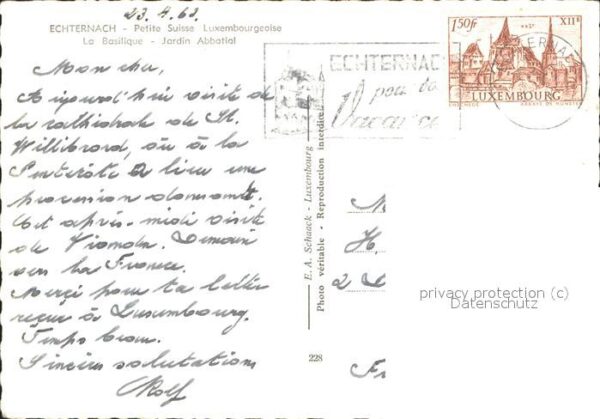 23.4.63.
ECHTERNACH - Petite Suisse Luxembourgeoise
La Basilique - Jardin Abbatial
Mon cher,
Aujourd'hui visite de
la cathédrale de St.
Willibrord, où à la
Pentecôte a lieu une
procession dansante.
Cet après-midi visite
de Vianden. Demain
vers la France.
Merci pour ta lettre
reçue à Luxembourg.
Temps beau.
Sincères salutations
Rolf
E. A. Schaack - Luxembourg
Photo véritable - Reproduction interdite
228
ECHTERNACH
pour vos
Vacances
1,50fr XIIe
LUXEMBOURG
ECHTERNACH
N
H.
2
Fr
privacy protection (c)
Datenschutz